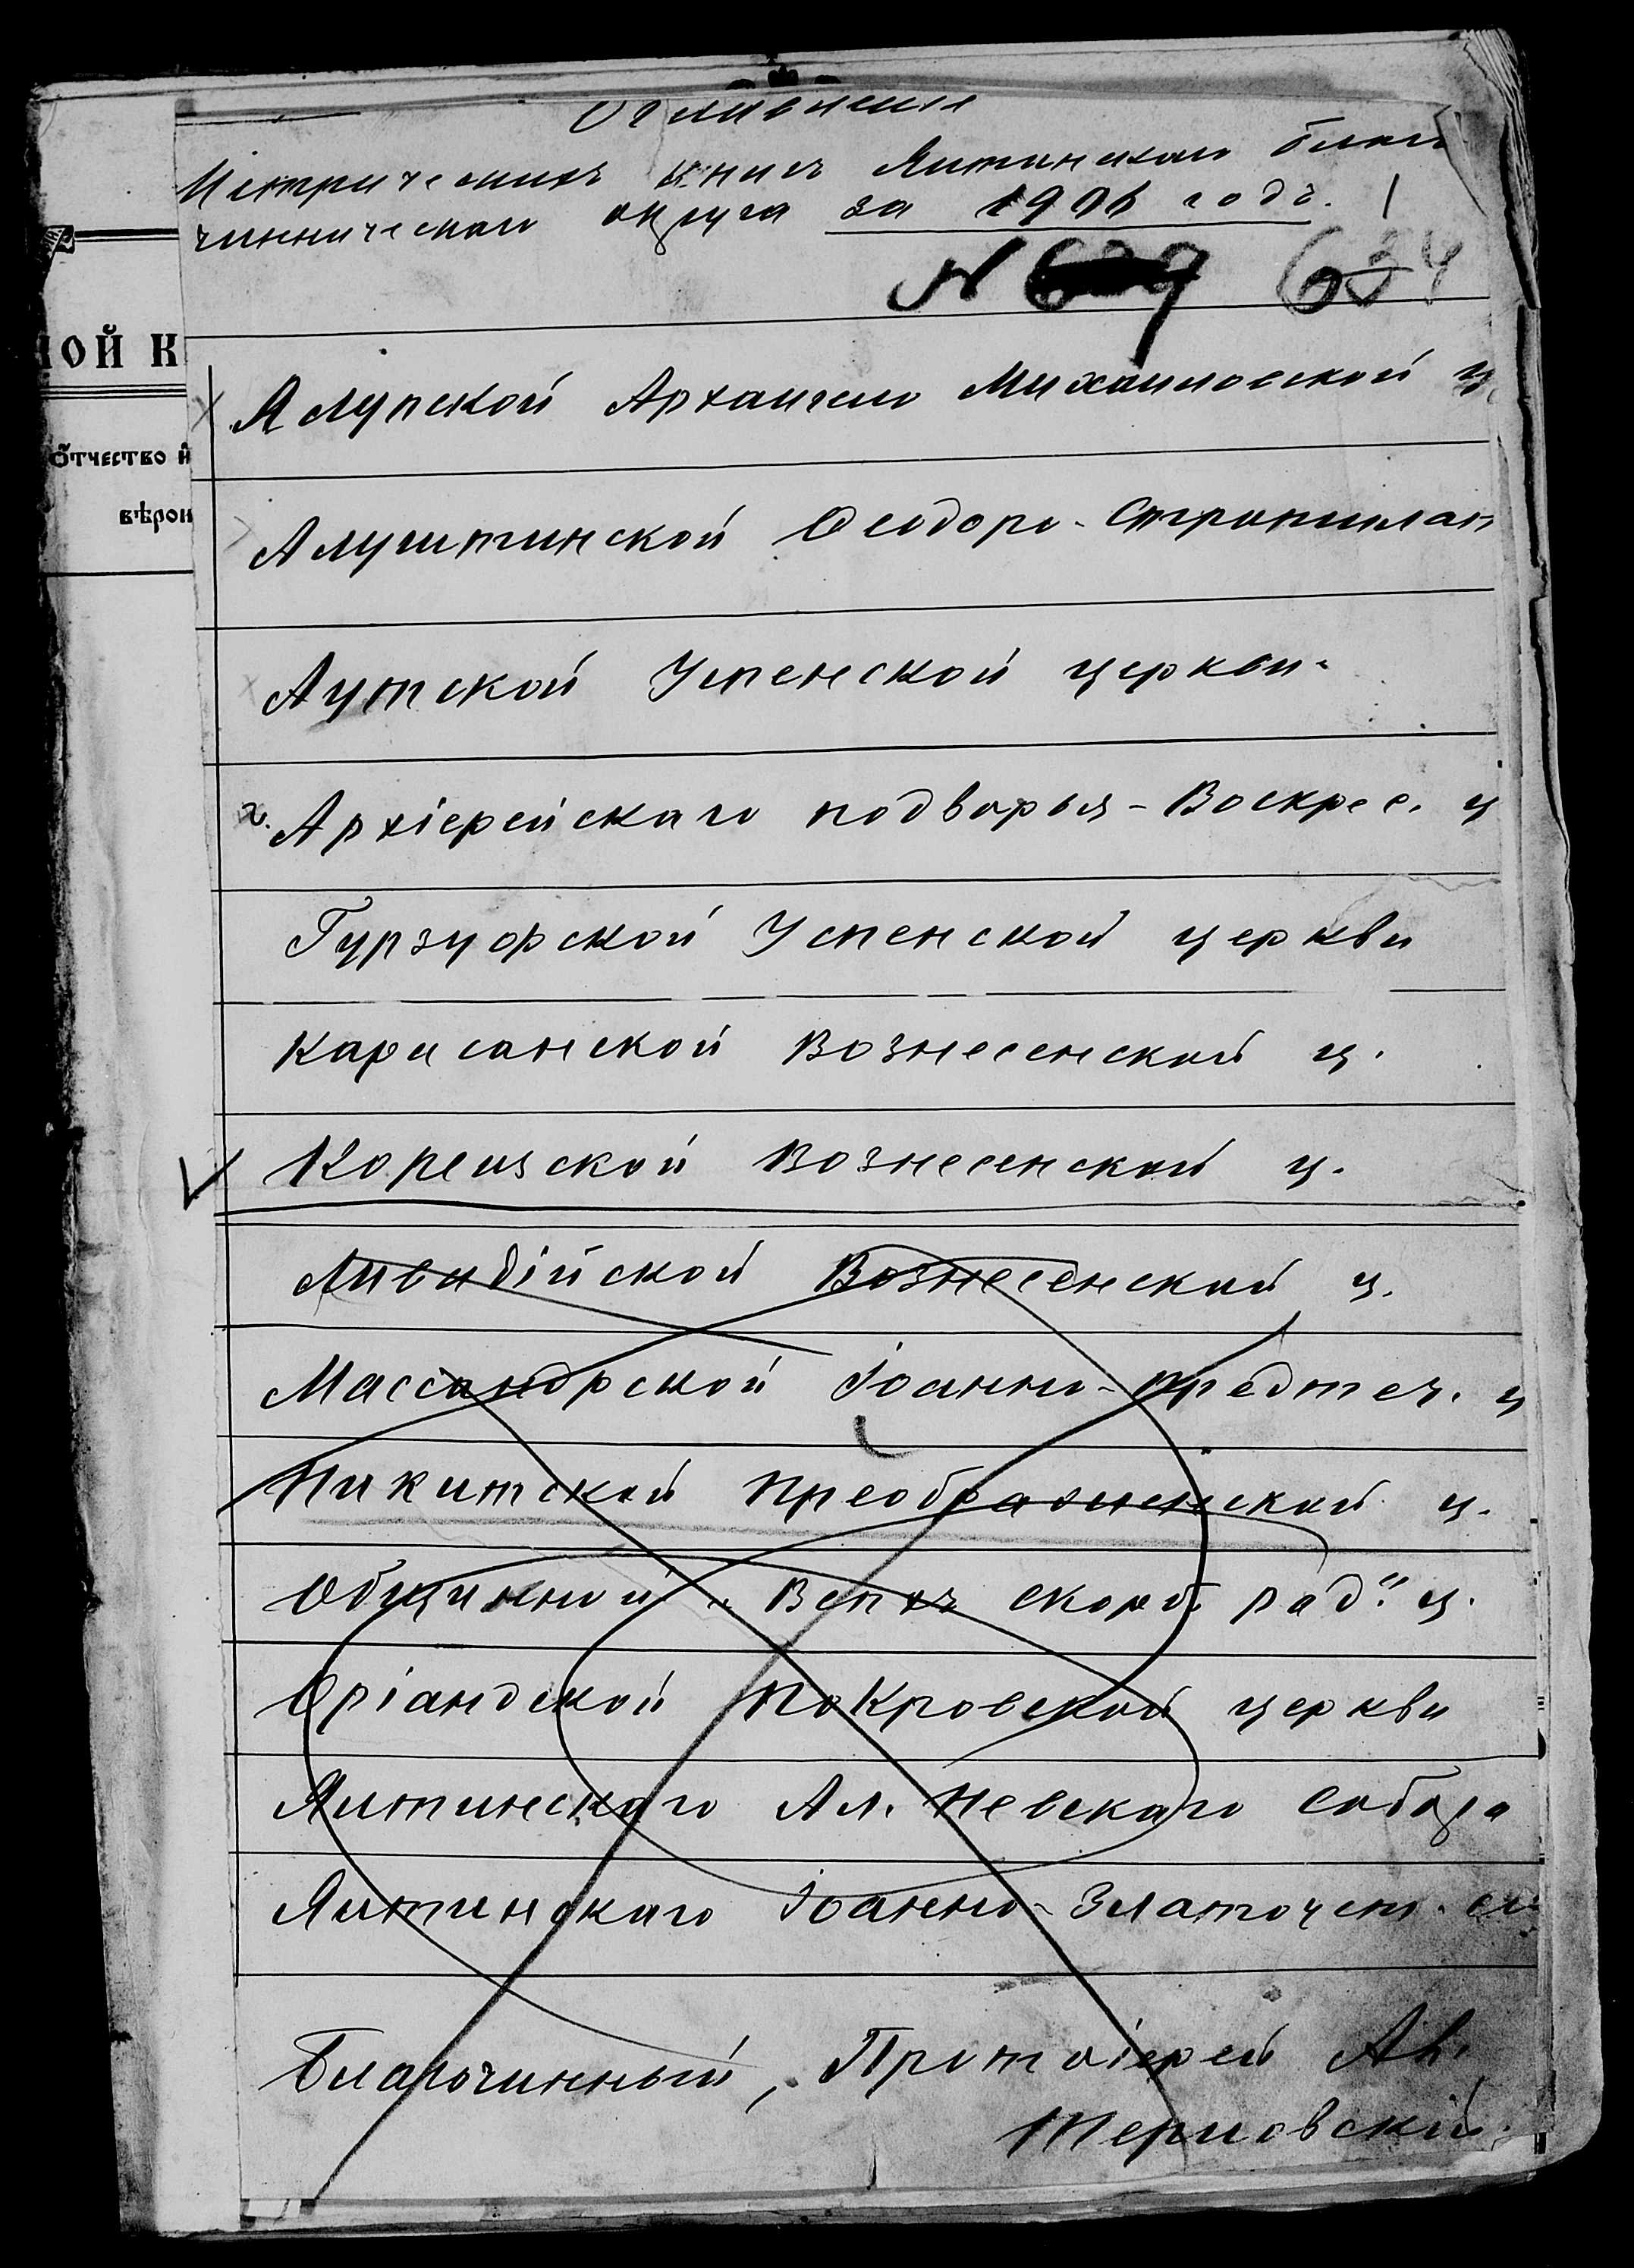 Оглавление
Метрическихъ книгъ Ялтинскаго благо
чинническаго округа за 1906 годъ. 1
№ 634
НОЙ К
Алупской Архангело Михайловской ц
ѻ҆тчество и҆
Алуштинской Ѳеодоро-Стратилат
вѣрои
Аутской Успенской церкви.
Архіерейскаго подворья - Воскрес. ц
Гурзуфской Успенской церкви
Карасанской Вознесенской ц.
Кореизской Вознесенской ц.
Ливадійской Вознесенской ц.
Массандрской Іоанно-Предтеч. ц
Никитской Преображенской ц.
Общинной „Всѣхъ скорб. рад." ц.
Оріандской Покровской церкви
Ялтинскаго Ал. Невскаго Собора
Ялтинскаго Іоанно-Златоуст. с
Благочинный, Протоіерей Ал.
Терновскій.